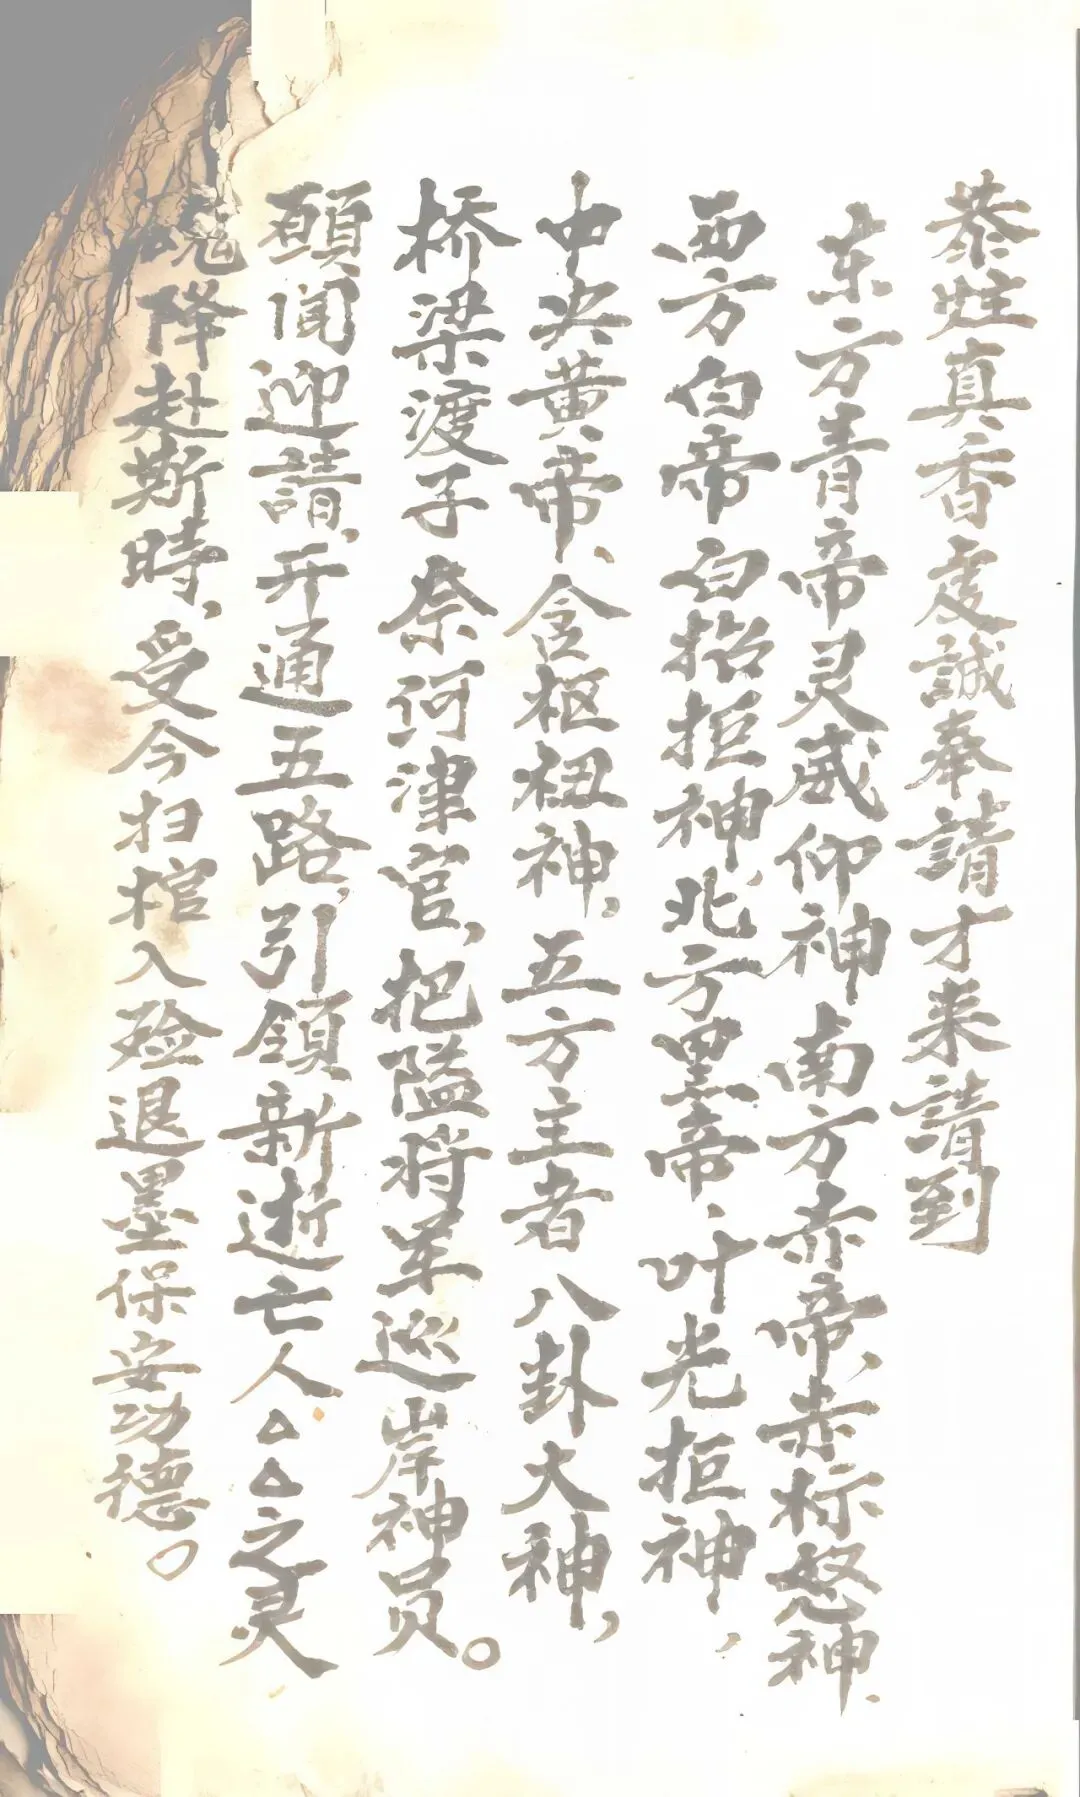 恭炷真香虔誠奉請才来請到
东方青帝灵威仰神南方赤帝、赤标怒神、
西方白帝白招拒神、北方黑帝、叶光拒神，
中央黄帝、含枢杻神，五方主者八卦大神，
桥梁渡子奈河津官，把隘将军巡岸神员。
願闻迎請，开通五路，引領新逝亡人△△之灵
魂降赴斯時，受今扫棺入殓退墨保安功德。